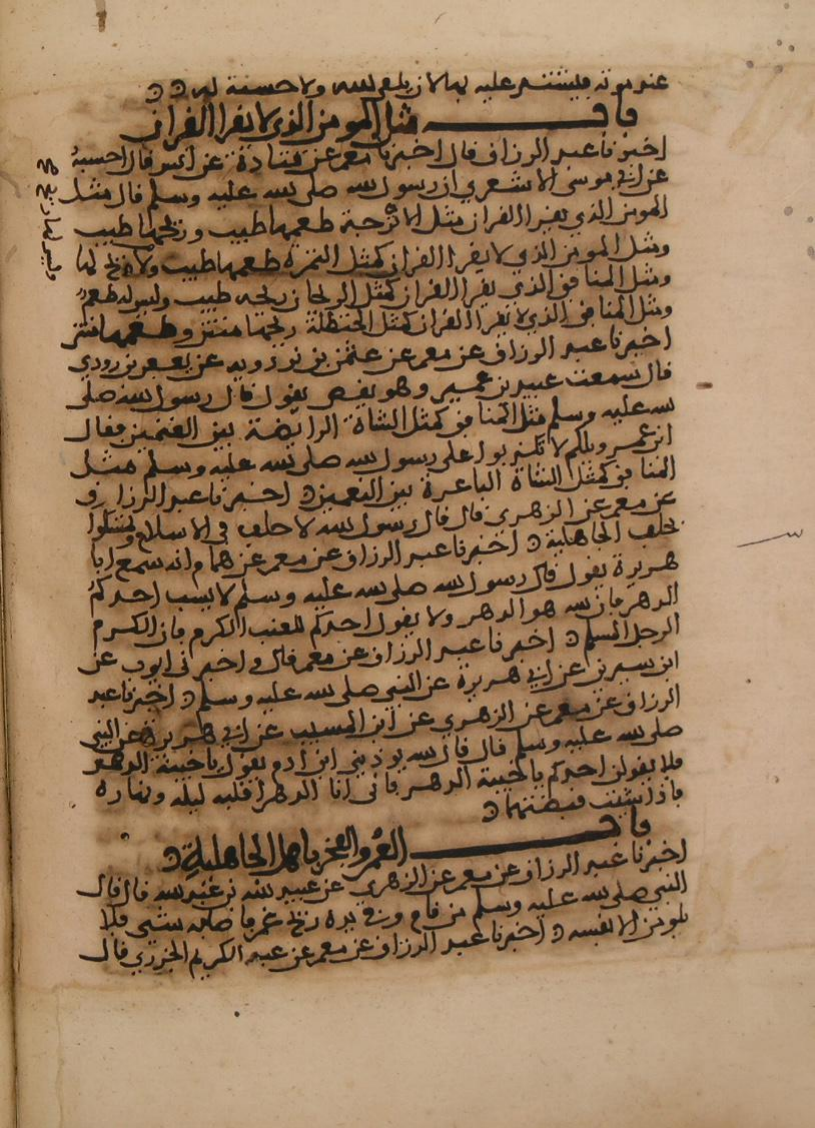 عند موته فيشتد عليه بها لان يلقى الله ولا حسنة له
باب مثل المومن الذي لا يقرا القران
اخبرنا عبد الرزاق قال اخبرنا معمر عن قتادة عن انس قال احسبه
عن ابي موسى الاشعري ان رسول الله صلى الله عليه وسلم قال مثل
المومن الذي يقرا القران مثل الاترجة طعمها طيب وريحها طيب
ومثل المومن الذي لا يقرا القران كمثل التمرة طعمها طيب ولا ريح لها
ومثل المنافق الذي يقرا القران كمثل الريحان ريحه طيب وليس له طعم
ومثل المنافق الذي لا يقرا القران كمثل الحنظلة ريحها منتن وطعمها منتن
اخبرنا عبد الرزاق عن معمر عن عثمن بن يزدويه عن يعفر بن روذي
قال سمعت عبيد بن عمير وهو يقص يقول قال رسول الله صلى
الله عليه وسلم مثل المنافق كمثل الشاة الرابضة بين الغنمين فقال
ابن عمر ويلكم لا تكذبوا على رسول الله صلى الله عليه وسلم مثل
المنافق كمثل الشاة الباعرة بين الغنمين اخبرنا عبد الرزاق
عن معمر عن الزهري قال قال رسول الله لا حلف في الاسلام وتمسكوا
بحلف الجاهلية اخبرنا عبد الرزاق عن معمر عن همام انه سمع ابا
هريرة يقول قال رسول الله صلى الله عليه وسلم لا يسب احدكم
الدهر فان الله هو الدهر ولا يقول احدكم للعنب الكرم فان الكرم
الرجل المسلم اخبرنا عبد الرزاق عن معمر قال واخبرني ايوب عن
ابن سيرين عن ابي هريرة عن النبي صلى الله عليه وسلم اخبرنا عبد
الرزاق عن معمر عن الزهري عن ابن المسيب عن ابي هريرة عن النبي
صلى الله عليه وسلم قال قال الله يوذيني ابن ادم يقول يا خيبة الدهر
فلا يقولن احدكم يا خيبة الدهر فاني انا الدهر اقلب ليله ونهاره
فاذا شيت قبضتهما
باب الغمر والفخر باهل الجاهلية
اخبرنا عبد الرزاق عن معمر عن الزهري عن عبيد الله بن عبد الله قال قال
النبي صلى الله عليه وسلم من نام وفي يده ريح غمر فاصابه شي فلا
يلومن الا نفسه اخبرنا عبد الرزاق عن معمر عن عبد الكريم الجزري قال